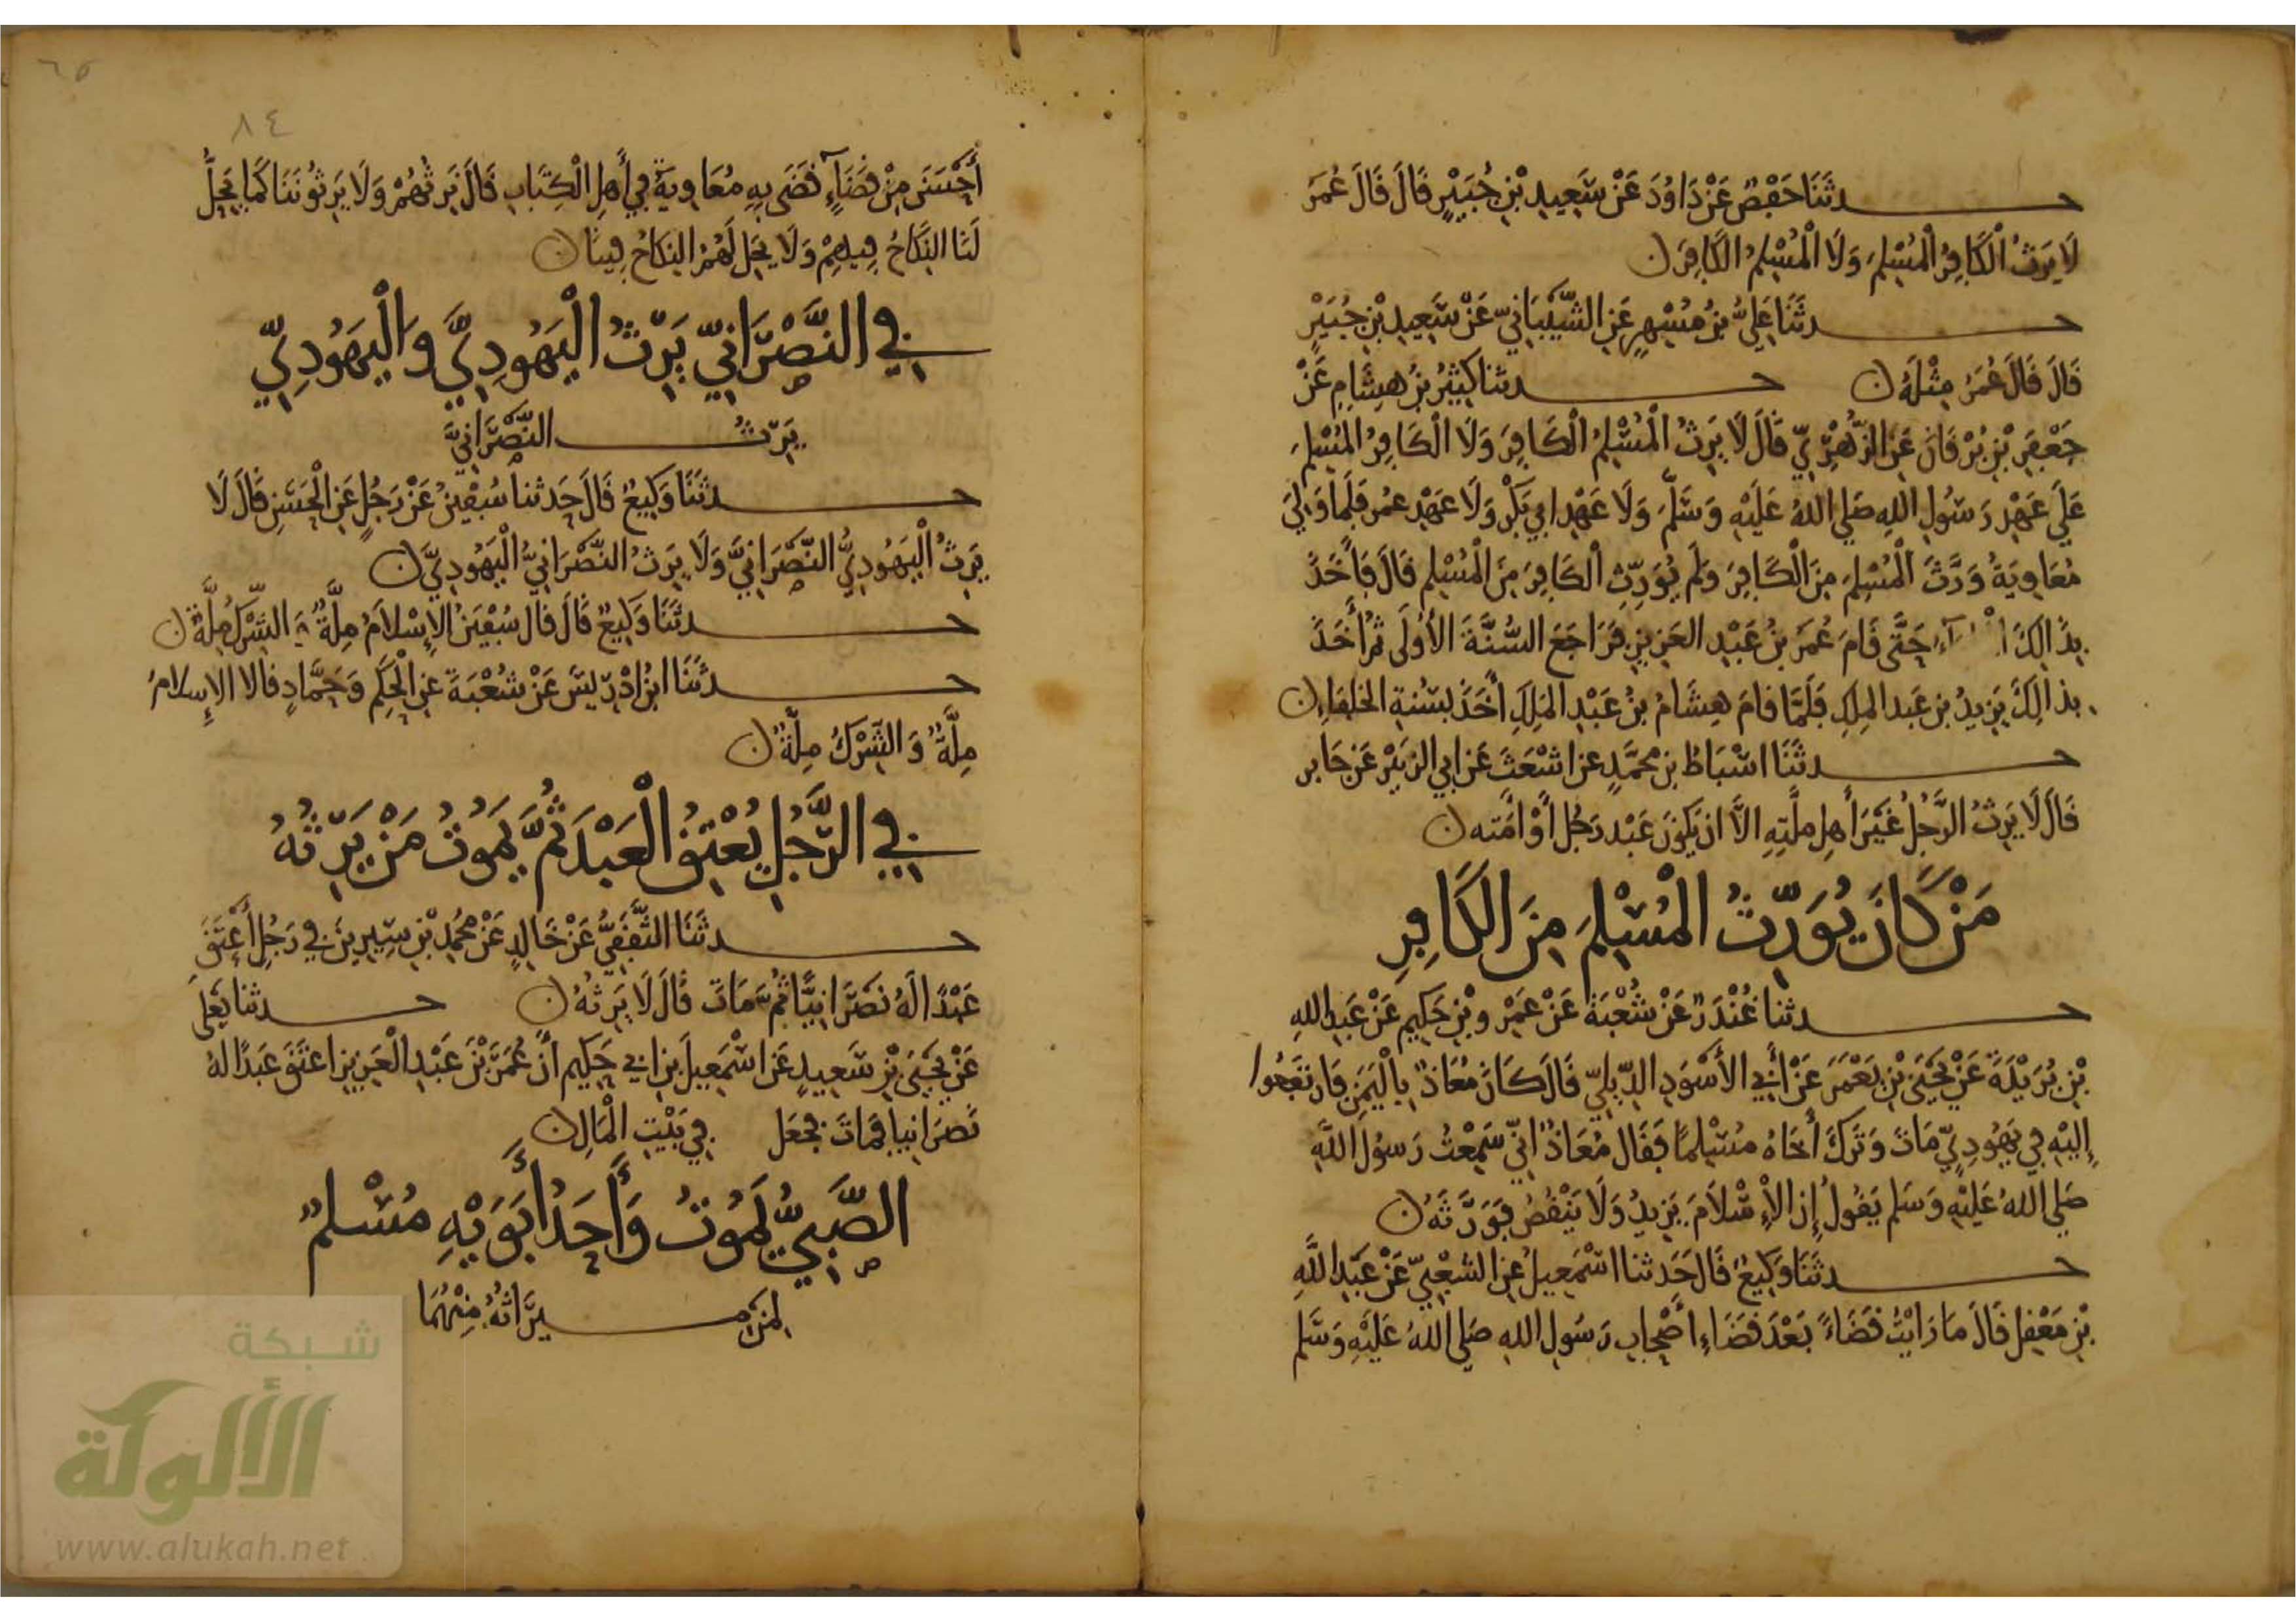 حدثنا حفص عن داود عن سعيد بن جبير قال قال عمر
لا يرث الكافر المسلم ولا المسلم الكافر
حدثنا علي بن مسهر عن الشيباني عن سعيد بن جبير
قال قال عمر مثله حدثنا كثير بن هشام عن
جعفر بن برقان عن الزهري قال لا يرث المسلم الكافر ولا الكافر المسلم
على عهد رسول الله صلى الله عليه وسلم ولا عهد ابي بكر ولا عهد عمر فلما ولي
معاوية ورث المسلم من الكافر ولم يورث الكافر من المسلم قال فأخذ
بذالك حتى قام عمر بن عبد العزيز فراجع السنة الأولى ثم أخذ
بذالك يزيد بن عبد الملك فلما قام هشام بن عبد الملك أخذ بسنة الخلفاء
حدثنا اسباط بن محمد عن اشعث عن ابي الزبير عن جابر
قال لا يرث الرجل غير أهل ملته الا ان يكون عبد رجل أو امته
من كان يورث المسلم من الكافر
حدثنا غندر عن شعبة عن عمرو بن حكيم عن عبد الله
بن بريدة عن يحيى بن يعمر عن أبي الأسود الديلي قال كان معاذ باليمن فارتفعوا
إليه في يهودي مات وترك أخاه مسلما فقال معاذ اني سمعت رسول الله
صلى الله عليه وسلم يقول إن الإسلام يزيد ولا ينقص فورثه
حدثنا وكيع قال حدثنا اسمعيل عن الشعبي عن عبد الله
بن معقل قال ما رايت قضاء بعد قضاء أصحاب رسول الله صلى الله عليه وسلم
٦٥
٨٤
أحسن من قضاء قضى به معاوية في أهل الكتاب قال نرثهم ولا يرثوننا كما يحل
لنا النكاح فيهم ولا يحل لهم النكاح فينا
في النصراني يرث اليهودي واليهودي
يرث النصراني
حدثنا وكيع قال حدثنا سفين عن رجل عن الحسن قال لا
يرث اليهودي النصراني ولا يرث النصراني اليهودي
حدثنا وكيع قال قال سفين الإسلام ملة والشرك ملة
حدثنا ابن ادريس عن شعبة عن الحكم وحماد قالا الإسلام
ملة والشرك ملة
في الرجل يعتق العبد ثم يموت من يرثه
حدثنا الثقفي عن خالد عن محمد بن سيرين في رجل أعتق
عبدا له نصرانيا ثم مات قال لا يرثه حدثنا يعلى
عن يحيى بن سعيد عن اسمعيل بن ابي حكيم أن عمر بن عبد العزيز اعتق عبدا له
نصرانيا فمات فجعل في بيت المال
الصبي يموت وأحد أبويه مسلم
لمن ميراثه منهما
شبكة
الألوكة
www.alukah.net